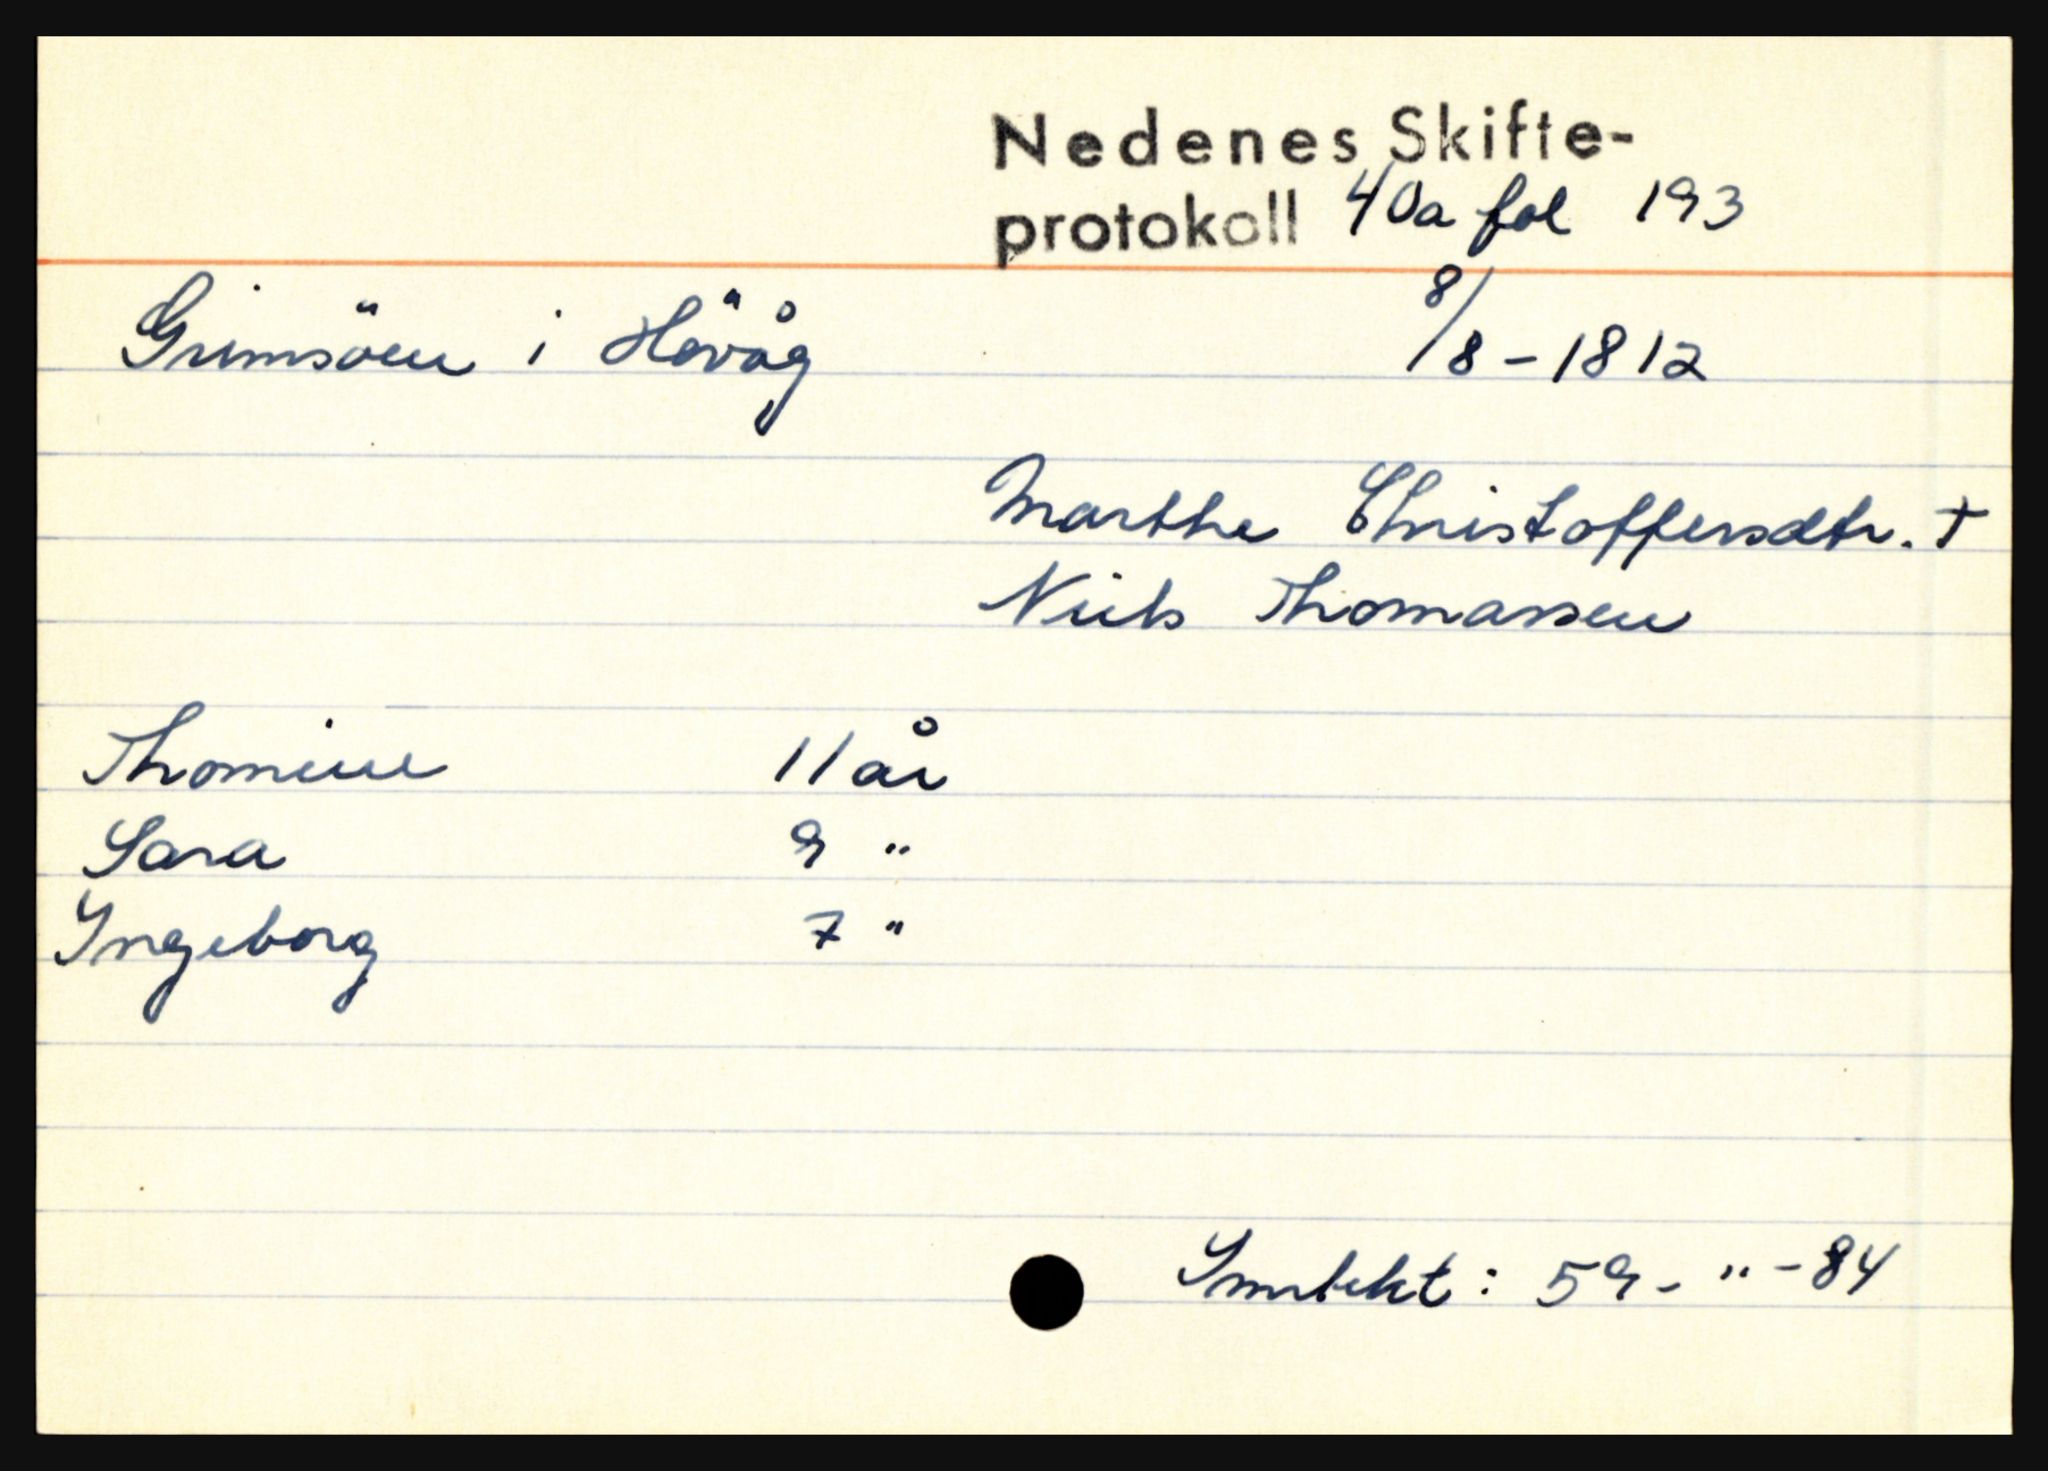 Nedenes Skifte-
protokoll 40a fol 193
Grimsöen i Hövåg 8/8-1812
Marthe Christoffersdtr. +
Niels Thomassen
Thomine 11 år
Sara 9 "
Ingeborg 7 "
Inntekt: 59 - " - 84